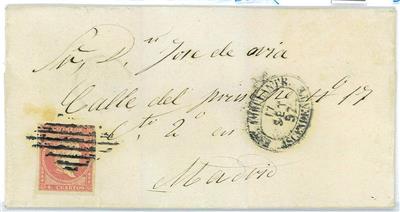 Sr. D.n Jose de avia
Calle del principe nº 17
to 2º
Madrid
17
SET
57
4 CUARTOS